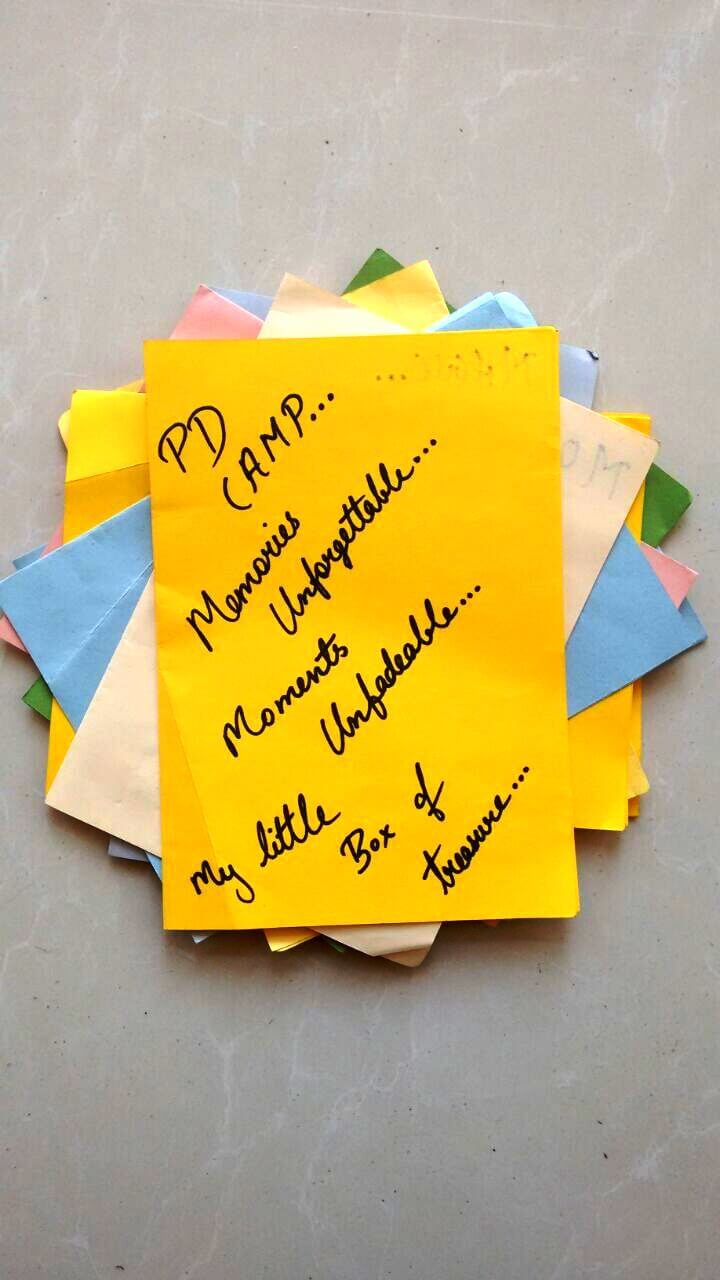 PD
CAMP...
Memories
Unforgettable...
Moments
Unfadeable...
My little
Box of
treasure...